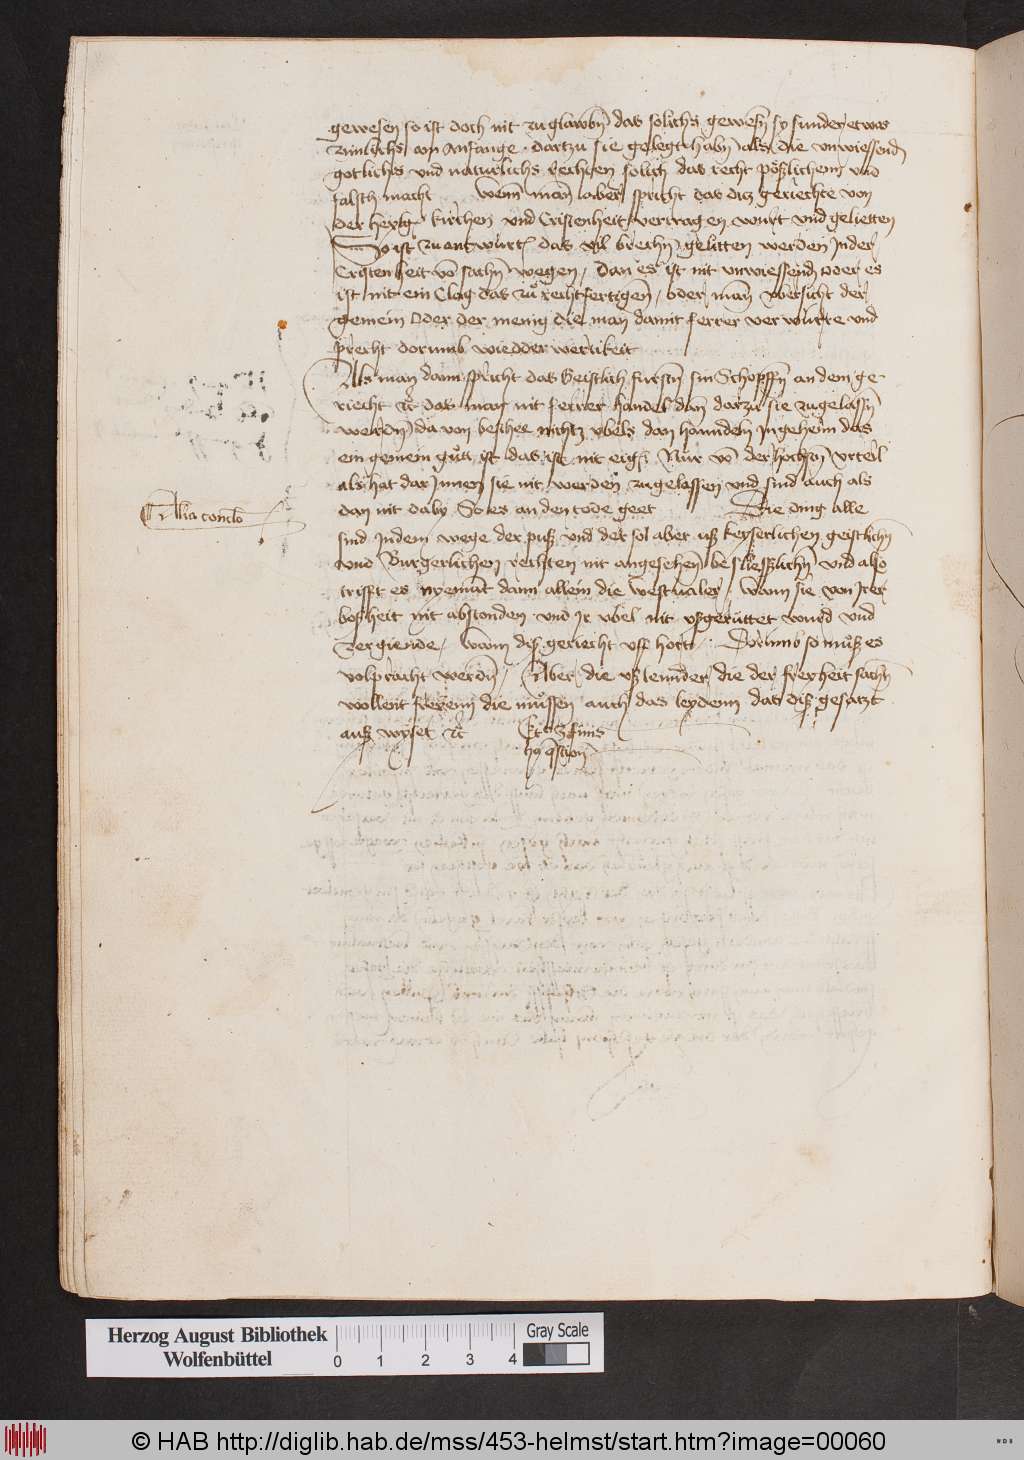 gewesen so ist doch nit zu glawbn das solichs gewesn sy sunder etwas
zimlichs am Anfange dartzu sie gelegt habn als die unwiessend
gotlichs und naturlichs rechten solich das recht pößlichem und
falsch macht Wenn man aber spricht das ditz geriechte von
der heylig kirchen und Cristenheit vertragen wurt und gelietten
So ist zu antwurt das vil brechn gelitten werden Inder
Cristenheit vo sachn wegen / dan es ist nit unwiessend oder es
ist nit ein Clag das zu rechtfertigen / oder man ubersicht der
gemein oder der menig die man damit ferrer verwurte und
precht dorumb wiedderwertikeit
Als man dann spricht das Geistlich fursten sin Schopffn an dem ge
riecht etc das man nit ferrer handel dan dorzu sie zugelassn
werdn da von beschee nichtz ubels dan hanndeln Ingeheim das
ein gemein gutt ist das ist nit eig Nur vo der hochstn urteil
als hat dar Innen sie nit werden zugelassen und sind auch als
dan nit daby So es an den tode geet Die ding alle
Alia conclo
sind Indem wege der puß und der sol aber uß keyserlichen geistlichn
und Burgerlichen rechten nit angesehen besliesslichn und also
trifft es nyemant dann allein die westvaler / Wann sie von Irer
bosheit nit abstanden und Ir ubel nit ußgeruttet wurd und
zergiende / wann diß geriecht uff hort / Dorumb so muß es
volpracht werdn / Aber die ußlennder die der freyheit sachn
wollent freyenn die mussen auch das leydenn das diß gesatzt
auß wyset etc Et S finis
hq qstion
Herzog August Bibliothek
Wolfenbüttel
0 1 2 3 4
Gray Scale
© HAB http://diglib.hab.de/mss/453-helmst/start.htm?image=00060